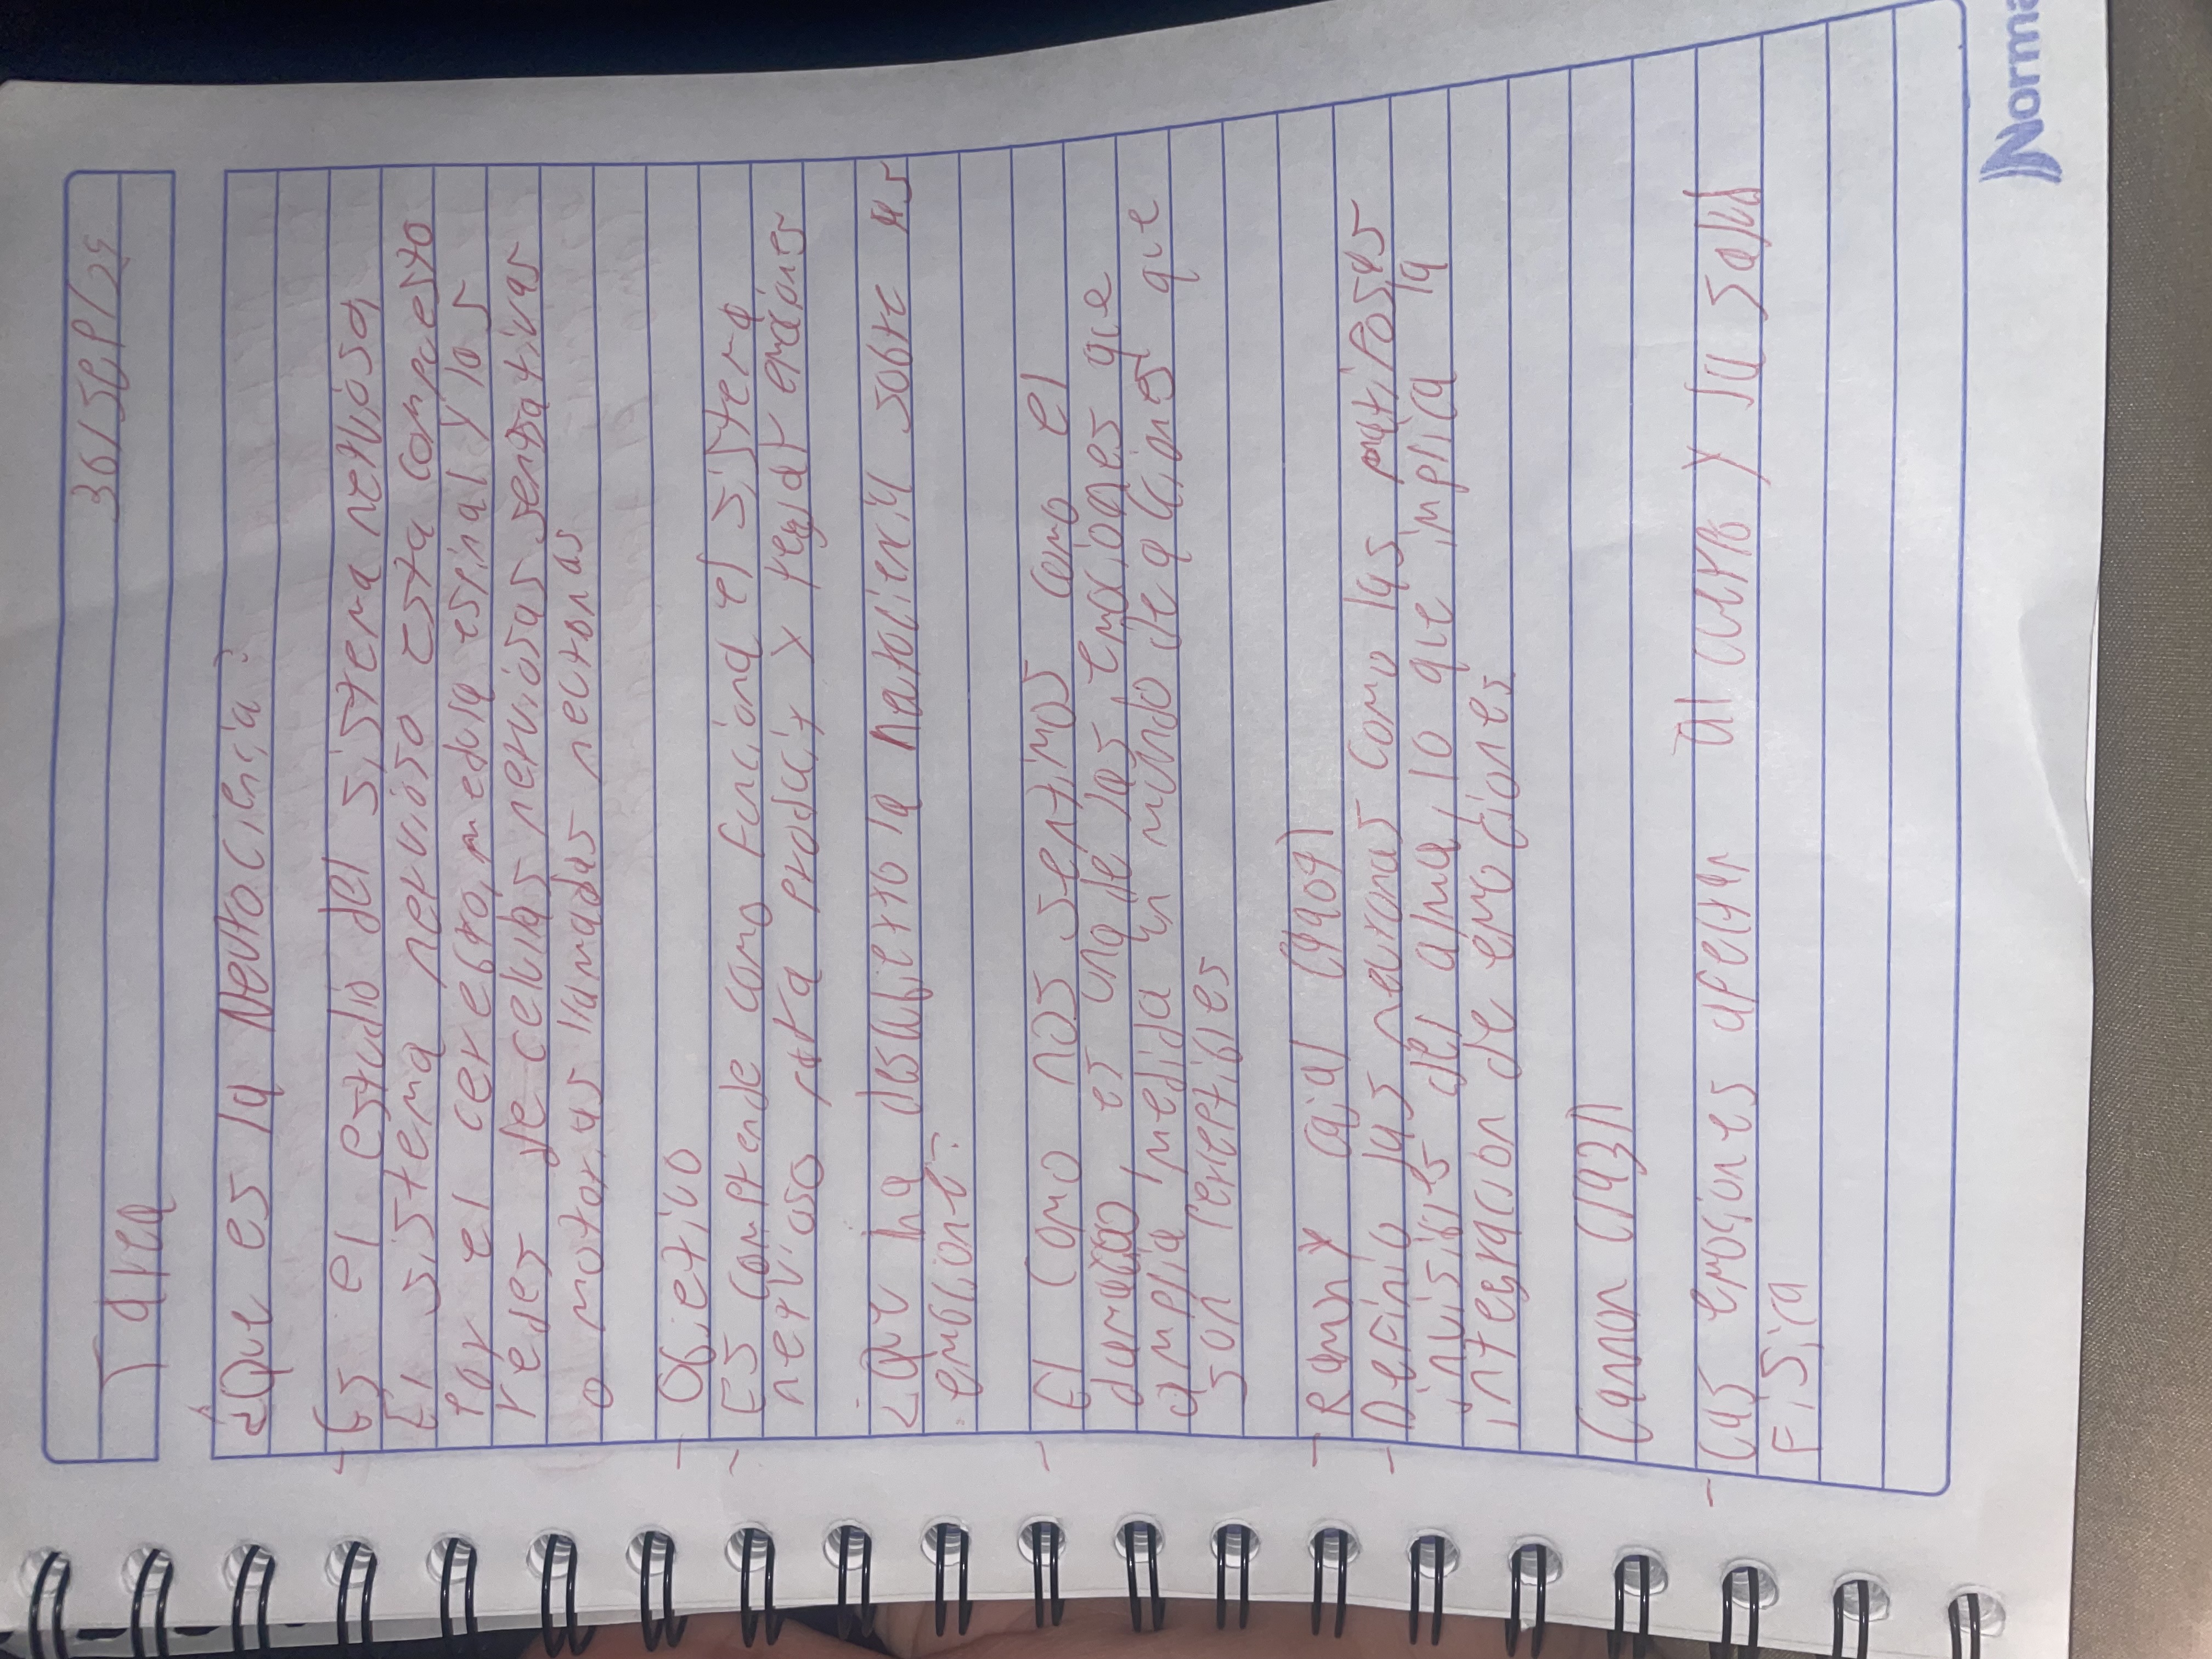 Tarea
¿Que es la Neurociencia?
- Es el estudio del sistema nervioso,
El sistema nervioso esta compuesto
por el cerebro, medula espinal y los
redes de celulas nerviosas sensativas
o motoras llamadas neuronas
- Objetivo
- Es comprende como funciona el sistema
nervioso para producir y regular emociones
¿Que ha descubierto la neurociencia sobre las
emociones?
- El Como nos sentimos como el
es una de las emociones que
amplia medida en mundo de aciones que
son perceptibles
- Ramon y Cajal
- Definio las neuronas como las mariposas
invisibles del alma, lo que implica la
integracion de emociones
Cannon (1931)
- Las emociones afectan al cuerpo y su salud
Fisica
Norma